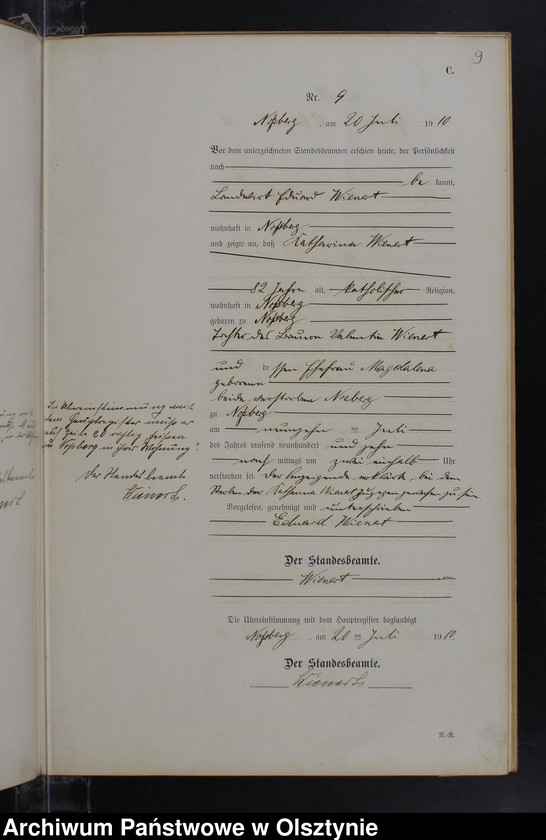 9
C.
Nr. 9
Noßberg, am 20 Juli 1910
Vor dem unterzeichneten Standesbeamten erschien heute, der Persönlichkeit
nach
be kannt,
Landwirt Eduard Wienert
wohnhaft in Noßberg
und zeigte an, daß Katharina Wienert
82 Jahre alt, katholischer Religion,
wohnhaft in Noßberg
geboren zu Noßberg
Tochter des Bauern Valentin Wienert
und dessen Ehefrau Magdalena
geborenen
beide verstorben Nosberg
zu Noßberg
am neunzehn ten Juli
des Jahres tausend neunhundert und zehn
nach mittags um zwei einhalb Uhr
verstorben sei. Der Anzeigende erklärte, bei dem
Sterben der Katharina Wienert zugegen gewesen zu sein
Vorgelesen, genehmigt und unterschrieben
Eduard Wienert
Der Standesbeamte.
Wienert
Die Übereinstimmung mit dem Hauptregister beglaubigt
Noßberg, am 20 ten Juli 1910.
Der Standesbeamte.
Wienert
In Übereinstimmung mit
dem Hauptregister muß es
auf Zeile 20 richtig heißen
"zu Noßberg in ihrer Wohnung"
Der Standesbeamte
Wienert.
R.-R.
Archiwum Państwowe w Olsztynie